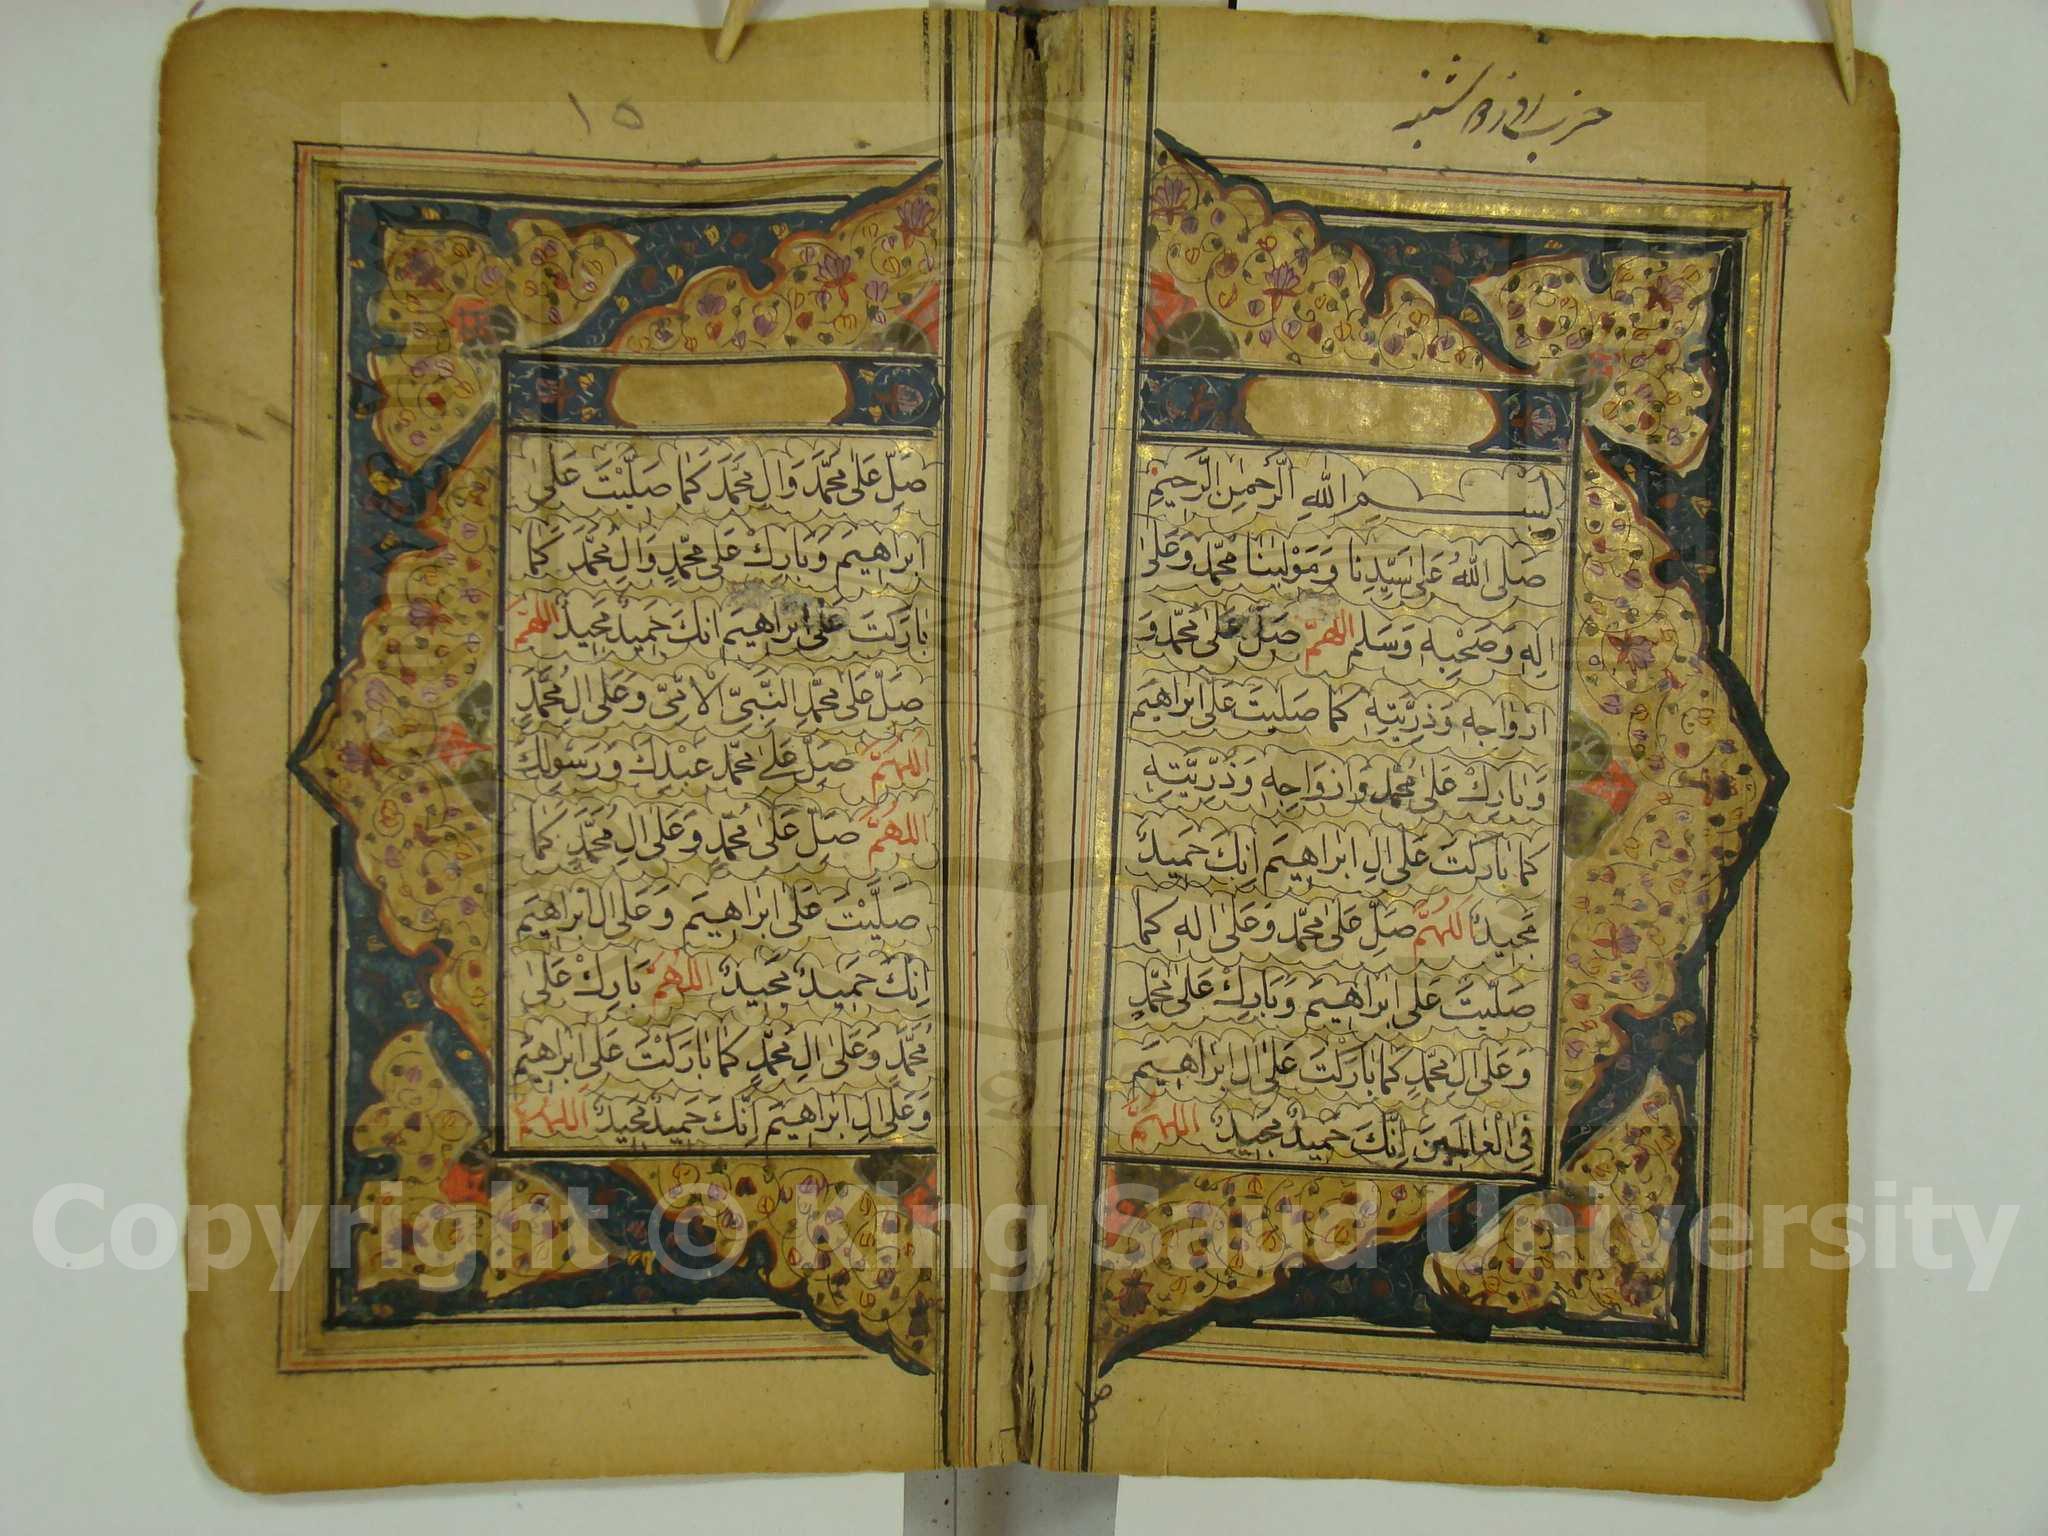 حزب روز دوشنبه
بِسْمِ اللهِ الرَّحْمٰنِ الرَّحِيمِ
صَلَّى اللهُ عَلىٰ سَيِّدِنَا وَمَوْلٰينَا مُحَمَّدٍ وَعَلىٰ
اٰلِهٖ وَصَحْبِهٖ وَسَلَّمَ اللّٰهُمَّ صَلِّ عَلىٰ مُحَمَّدٍ وَ
اَزْوَاجِهٖ وَذُرِّيَّتِهٖ كَمَا صَلَيتَ عَلىٰ اِبْرَاهِيمَ
وَبَارِكْ عَلىٰ مُحَمَّدٍ وَازْوَاجِهٖ وَذُرِّيَّتِهٖ
كَمَا بَارَكْتَ عَلىٰ اٰلِ اِبْرَاهِيمَ اِنَّكَ حَمِيدٌ
مَجِيدٌ اَللّٰهُمَّ صَلِّ عَلىٰ مُحَمَّدٍ وَعَلىٰ اٰلِهٖ كَمَا
صَلَّيْتَ عَلىٰ اِبْرَاهِيمَ وَبَارِكْ عَلىٰ مُحَمَّدٍ
وَعَلىٰ اٰلِ مُحَمَّدٍ كَمَا بَارَكْتَ عَلىٰ اٰلِ اِبْرَاهِيمَ
فِى الْعَالَمِينَ اِنَّكَ حَمِيدٌ مَجِيدٌ اَللّٰهُمَّ
صل
١٥
صَلِّ عَلىٰ مُحَمَّدٍ وَاٰلِ مُحَمَّدٍ كَمَا صَلَّيْتَ عَلىٰ
اِبْرَاهِيمَ وَبَارِكْ عَلىٰ مُحَمَّدٍ وَاٰلِ مُحَمَّدٍ كَمَا
بَارَكْتَ عَلىٰ اِبْرَاهِيمَ اِنَّكَ حَمِيدٌ مَجِيدٌ اَللّٰهُمَّ
صَلِّ عَلىٰ مُحَمَّدٍ النَّبِيِّ الْاُمِّيِّ وَعَلىٰ اٰلِ مُحَمَّدٍ
اَللّٰهُمَّ صَلِّ عَلىٰ مُحَمَّدٍ عَبْدِكَ وَرَسُولِكَ
اَللّٰهُمَّ صَلِّ عَلىٰ مُحَمَّدٍ وَعَلىٰ اٰلِ مُحَمَّدٍ كَمَا
صَلَّيْتَ عَلىٰ اِبْرَاهِيمَ وَعَلىٰ اٰلِ اِبْرَاهِيمَ
اِنَّكَ حَمِيدٌ مَجِيدٌ اَللّٰهُمَّ بَارِكْ عَلىٰ
مُحَمَّدٍ وَعَلىٰ اٰلِ مُحَمَّدٍ كَمَا بَارَكْتَ عَلىٰ اِبْرَاهِيمَ
وَعَلىٰ اٰلِ اِبْرَاهِيمَ اِنَّكَ حَمِيدٌ مَجِيدٌ اَللّٰهُمَّ
Copyright © King Saud University
1957